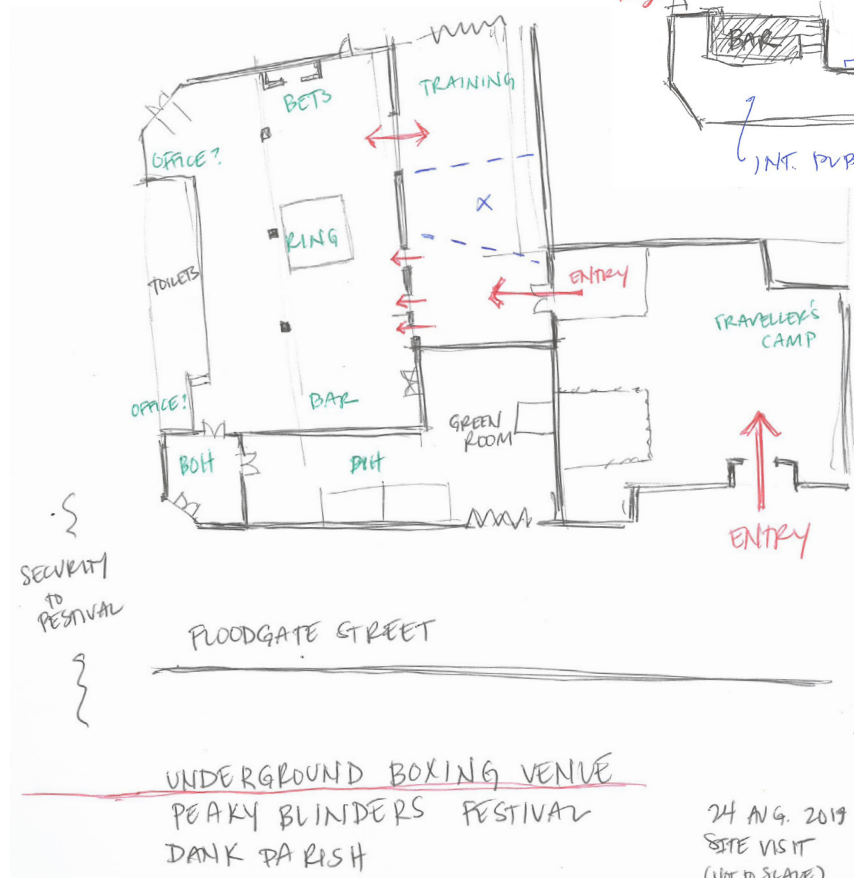 BAR
INT. PUB
TRAINING
BETS
OFFICE?
X
RING
ENTRY
TOILETS
TRAVELLER'S
CAMP
OFFICE?
BAR
GREEN
ROOM
BOH
BOH
ENTRY
SECURITY
TO
FESTIVAL
FLOODGATE STREET
UNDERGROUND BOXING VENUE
PEAKY BLINDERS FESTIVAL
DANK PARISH
24 AUG. 2019
SITE VISIT
(NOT TO SCALE)